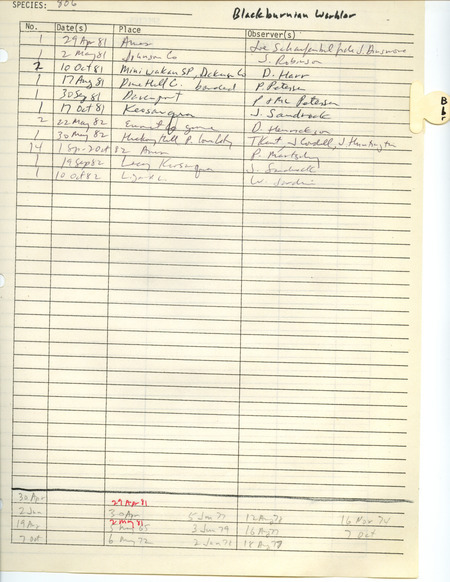 SPECIES: 806 Blackburnian Warbler
No. Date(s) Place Observer(s)
1 29 Apr 81 Ames J. Dinsmore
1 2 May 81 Johnson Co J. Robinson
2 10 Oct 81 Mini Wakan SP, Dickinson Co D. Harr
1 17 Aug 81 Pine Hill C. banded P. Petersen
1 30 Sep 81 Davenport P. Petersen
1 17 Oct 81 Keosauqua J. Sandrock
2 22 May 82 D. Henrickson
1 30 May 82 T Kent, J. Huntington
14 1 Sep-2 Oct 82 Ames
1 19 Sep 82 Lacey Keosauqua J. Sandrock
1 10 Oct 82
B
b
r
30 Apr 29 Apr 81
2 Jun 30 Apr 5 Jun 77 12 Aug 78 16 Nov 74
19 Aug 2 May 81 2 Jun 79 16 Aug 77 7 Oct
7 Oct 6 Aug 72 2 Jun 78 18 Aug 79